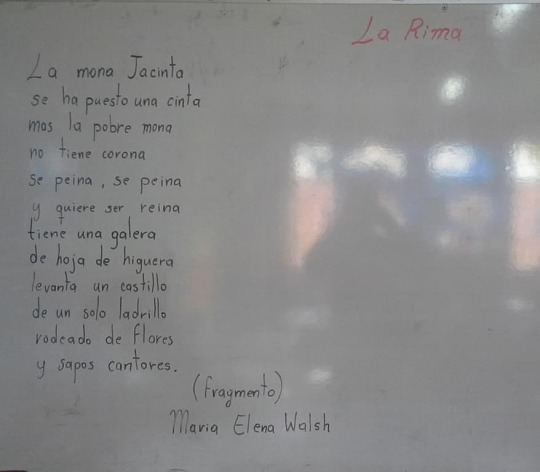 La Rima
La mona Jacinta
se ha puesto una cinta
mas la pobre mona
no tiene corona
se peina, se peina
y quiere ser reina
tiene una galera
de hoja de higuera
levanta un castillo
de un solo ladrillo
rodeado de flores
y sapos cantores.
(fragmento)
Maria Elena Walsh